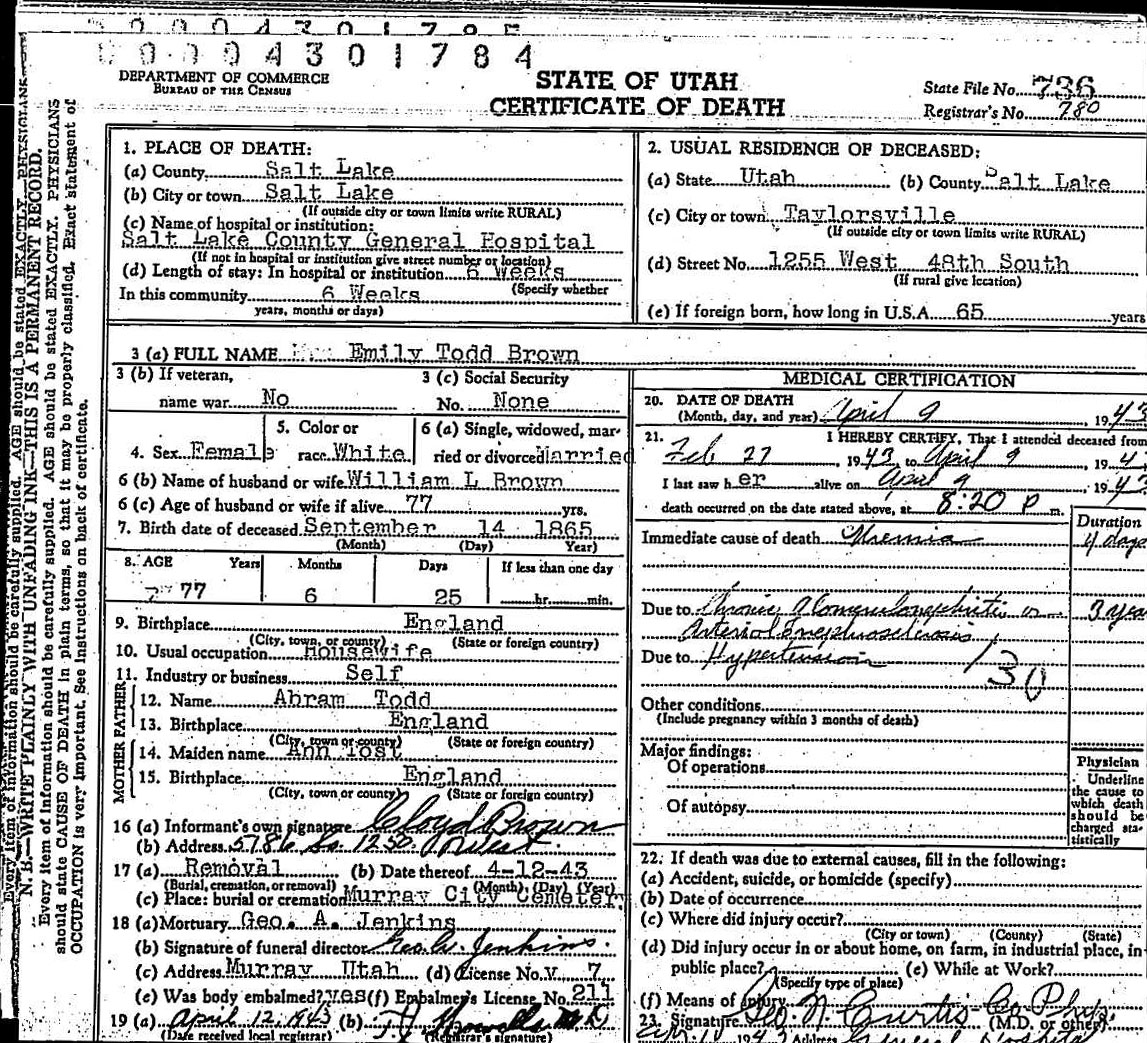 0 0 0 4 3 0 1 7 8 4
DEPARTMENT OF COMMERCE
BUREAU OF THE CENSUS
STATE OF UTAH
CERTIFICATE OF DEATH
State File No. 736
Registrar's No. 780
N. B.—WRITE PLAINLY WITH UNFADING INK—THIS IS A PERMANENT RECORD.
Every item of information should be carefully supplied. AGE should be stated EXACTLY. PHYSICIANS
should state CAUSE OF DEATH in plain terms, so that it may be properly classified. Exact statement of
OCCUPATION is very important. See instructions on back of certificate.
1. PLACE OF DEATH:
(a) County Salt Lake
(b) City or town Salt Lake
(If outside city or town limits write RURAL)
(c) Name of hospital or institution:
Salt Lake County General Hospital
(If not in hospital or institution give street number or location)
(d) Length of stay: In hospital or institution 6 Weeks
(Specify whether
In this community 6 Weeks
years, months or days)
2. USUAL RESIDENCE OF DECEASED:
(a) State Utah (b) County Salt Lake
(c) City or town Taylorsville
(If outside city or town limits write RURAL)
(d) Street No. 1255 West 48th South
(If rural give location)
(e) If foreign born, how long in U.S.A. 65 years
3 (a) FULL NAME Emily Todd Brown
3 (b) If veteran,
name war No
3 (c) Social Security
No. None
4. Sex Female
5. Color or
race White
6 (a) Single, widowed, mar-
ried or divorced Married
6 (b) Name of husband or wife William L Brown
6 (c) Age of husband or wife if alive 77 yrs.
7. Birth date of deceased September 14 1865
(Month) (Day) Year)
8. AGE Years Months Days If less than one day
77 6 25 hr. min.
9. Birthplace England
(City, town, or county) (State or foreign country)
10. Usual occupation Housewife
11. Industry or business Self
FATHER
12. Name Abram Todd
13. Birthplace England
(City, town or county) (State or foreign country)
MOTHER
14. Maiden name Ann Tost
15. Birthplace England
(City, town or county) (State or foreign country)
16 (a) Informant's own signature Cloyd Brown
(b) Address 5786 So. 1250 West.
17 (a) Removal (b) Date thereof 4-12-43
(Burial, cremation, or removal) (Month) (Day) (Year)
(c) Place: burial or cremation Murray City Cemetery
18 (a) Mortuary Geo. A. Jenkins
(b) Signature of funeral director Geo. A. Jenkins.
(c) Address Murray Utah (d) License No. V 7
(e) Was body embalmed? yes (f) Embalmer's License No. 211
19 (a) April 12, 1943 (b)
(Date received local registrar) (Registrar's signature)
MEDICAL CERTIFICATION
20. DATE OF DEATH
(Month, day, and year) April 9, 1943
21. I HEREBY CERTIFY, That I attended deceased from
Feb 27, 1943 to April 9, 194
I last saw her alive on April 9, 194
death occurred on the date stated above, at 8:20 P m.
Duration
Immediate cause of death Uremia 4 days
Due to Chronic Glomerulonephritis or 3 yea
Arterial nephrosclerosis
Due to Hypertension
130
Other conditions
(Include pregnancy within 3 months of death)
Major findings:
Of operations
Of autopsy
Physician
Underline
the cause to
which death
should be
charged sta-
tistically
22. If death was due to external causes, fill in the following:
(a) Accident, suicide, or homicide (specify)
(b) Date of occurrence
(c) Where did injury occur?
(City or town) (County) (State)
(d) Did injury occur in or about home, on farm, in industrial place, in
public place? (e) While at Work?
(Specify type of place)
(f) Means of injury
23. Signature Geo. N. Curtis Co. Phys.
(M.D. or other)
Address General Hospital